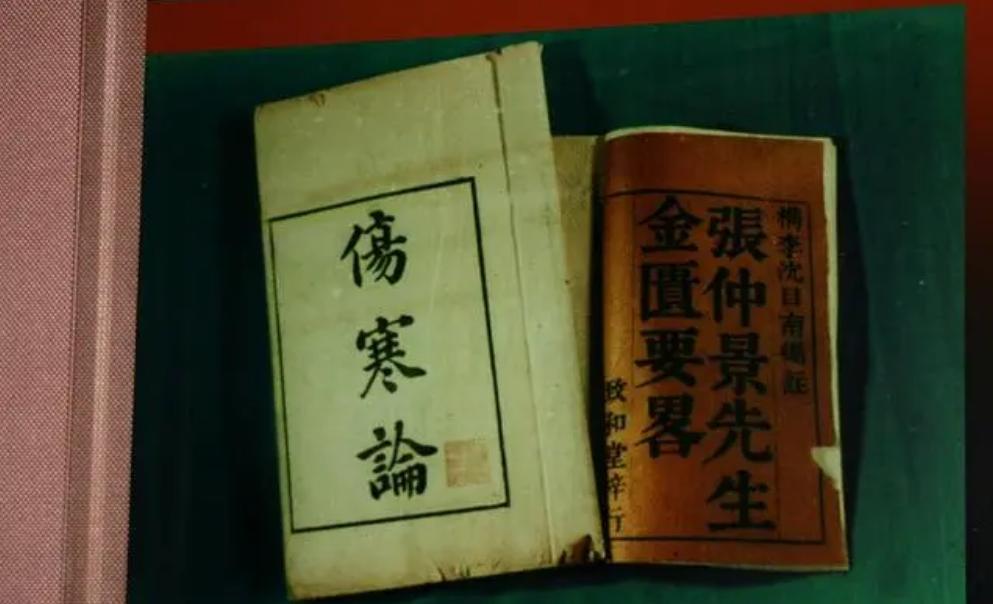 傷寒論
檇李沈目南編註
張仲景先生
金匱要畧
致和堂梓行